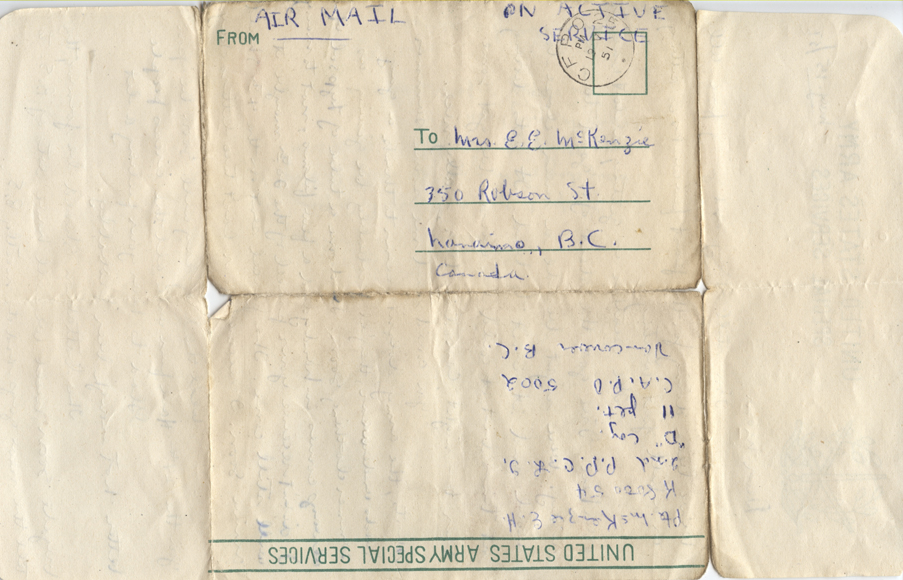 AIR MAIL ON ACTIVE
SERVICE
FROM
CFPO
PM
51
To Mrs. E.E. McKenzie
350 Robson St.
Nanaimo, B.C.
Canada.
UNITED STATES ARMY SPECIAL SERVICES
Pte. McKenzie E. H.
K
2nd P.P.C.L.I.
"D" Coy.
11 plt.
C.A.P.O 5002
Vancouver B.C.